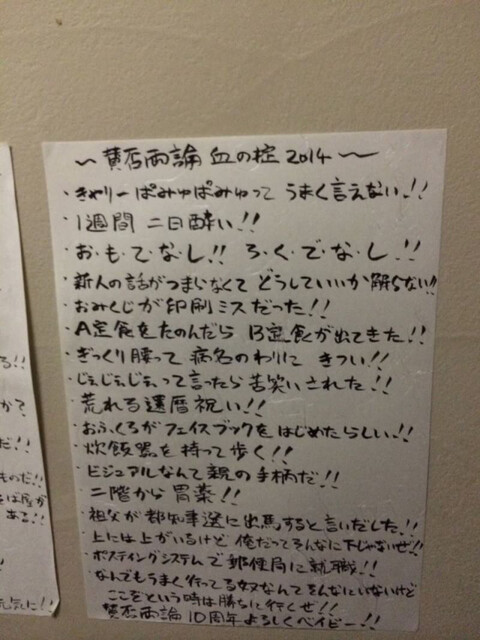 〜 賛否両論 血の掟 2014 〜
・きゃりーぱみゅぱみゅって うまく言えない!!
・1週間 二日酔い!!
・お・も・て・な・し!! ろ・く・で・な・し!!
・新人の話がつまらなくて どうしていいか解らない!!
・おみくじが印刷ミスだった!!
・A定食をたのんだら B定食が出てきた!!
・ぎっくり腰って 病名のわりに きつい!!
・じぇじぇじぇって言ったら 苦笑いされた!!
・荒れる還暦祝い!!
・おふくろがフェイスブックをはじめたらしい!!
・炊飯器を持って歩く!!
・ビジュアルなんて親の手柄だ!!
・二階から 胃薬!!
・祖父が都知事選に出馬すると言いだした!!
・上には上がいるけど 俺だってそんなに下じゃないぜ!!
・ポスティングシステムで郵便局に就職!!
・なんでもうまく行ってる奴なんてそんなにいないけど
ここぞという時は勝ちに行くぜ!!
賛否両論 10周年よろしくベイビー!!
る!!
か?
だ!!
ものだ!!
そば屋が
ある!!
元気に!!